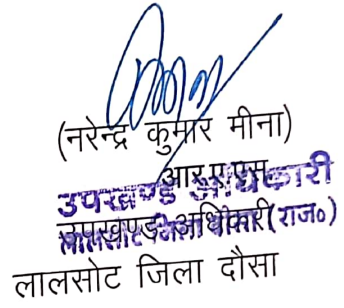 (नरेन्द्र कुमार मीना)
आर.ए.एस.
उपखण्ड अधिकारी
उपखण्ड अधिकारी
(राज०)
लालसोट जिला दौसा